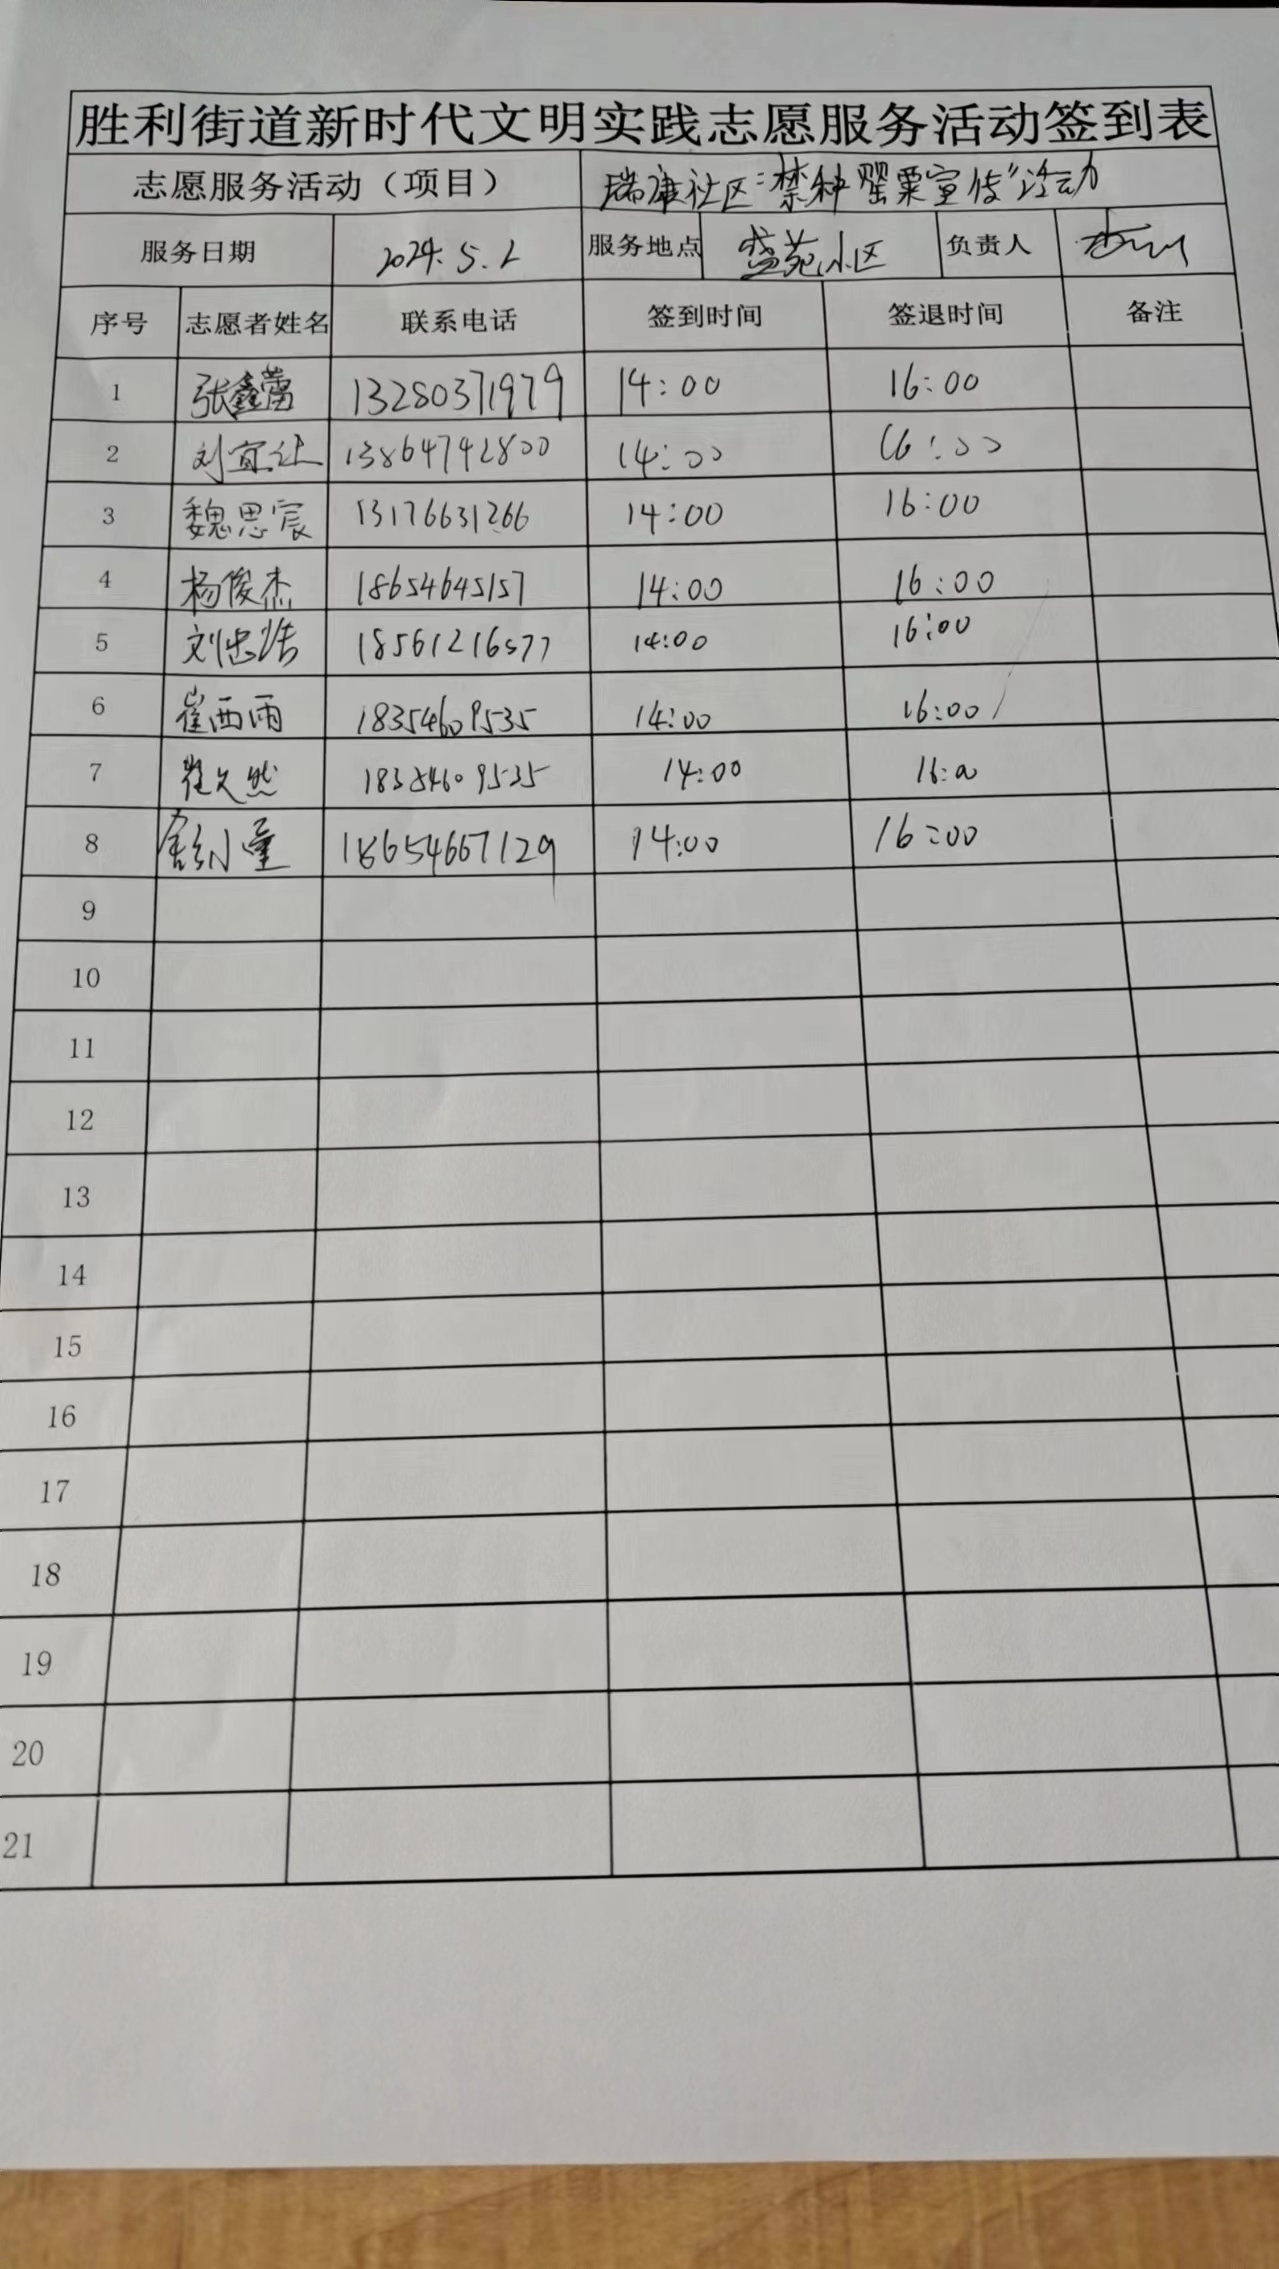 胜利街道新时代文明实践志愿服务活动签到表
志愿服务活动（项目） 瑞康社区“禁种罂粟宣传”活动
服务日期 2024.5.2 服务地点 盛苑小区 负责人
序号 志愿者姓名 联系电话 签到时间 签退时间 备注
1 张鑫蕾 13280371979 14:00 16:00
2 刘宜 13864742800 14:00 16:00
3 魏思宸 13176631266 14:00 16:00
4 杨俊杰 18654645157 14:00 16:00
5 刘忠浩 18561216577 14:00 16:00
6 崔西雨 18354609535 14:00 16:00
7 崔文然 18354609535 14:00 16:00
8 18654667129 14:00 16:00
9
10
11
12
13
14
15
16
17
18
19
20
21